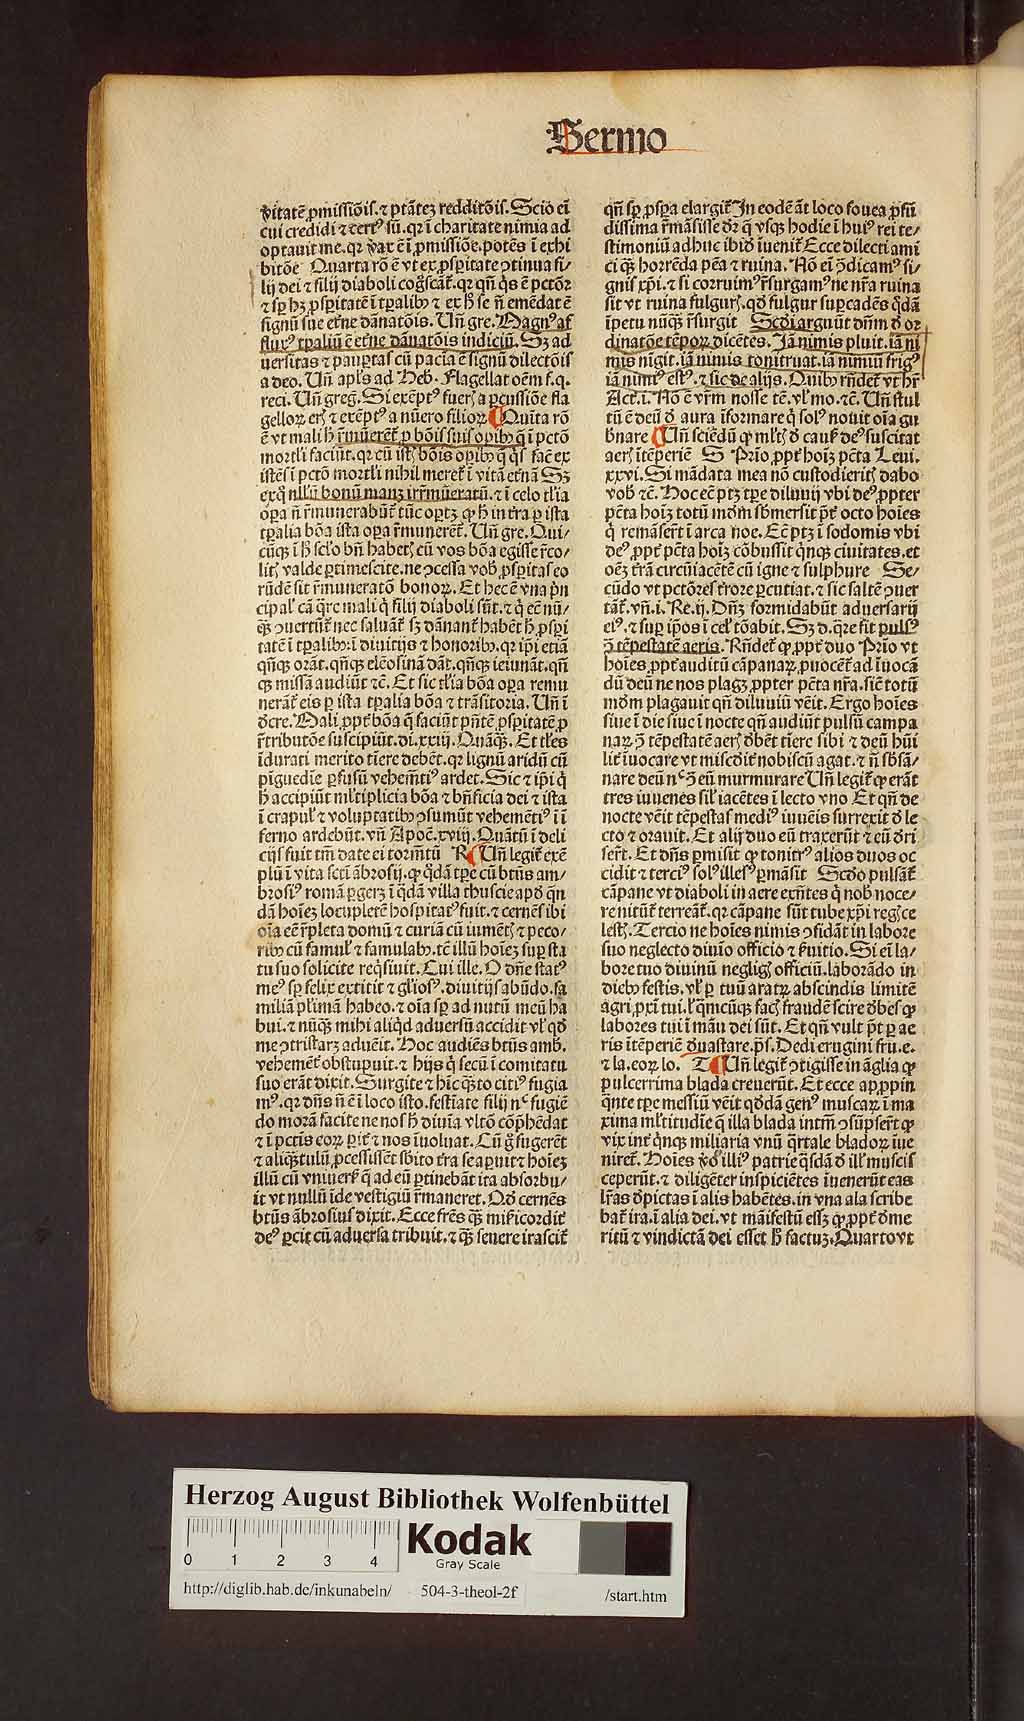 Sermo
ṽitatē ꝓmissiōis. ⁊ ptātez redditōis. Scio ei
cui credidi ⁊ cert⁹ sū. qr ī charitate nimia ad
optauit me. qr ṽax ē ī ꝓmissiōe. potēs ī exhi
bitōe Quarta rō ē vt ex ꝓsꝑitate ↄtinua fi/
lij dei ⁊ filij diaboli cogscāt. qr qñ qs ē pctōr
⁊ sꝑ hz ꝓsꝑitatē ī tꝑalibꝰ ⁊ ex h̄ se ñ emēdat ē
signū sue etne dānatōis. Uñ gre. Magn⁹ af
flux⁹ tꝑaliū ē etne dānatōis indiciū. Sz ad
uersitas ⁊ pauꝑtas cū pacīa ē signū dilectōis
a deo. Uñ apls ad Heb. Flagellat oēm f. q.
reci. Uñ greg. Si exēpt⁹ fuerꝭ a ꝑcussiōe fla
gelloꝝ erꝭ ⁊ exēpt⁹ a nūero filioꝝ Quīta rō
ē vt mali h̄ r̄muerēt ꝑ bōis suis oꝑibꝰ q̄ ī pctō
mortli faciūt. qr cū istꝭ bōis oꝑibꝰ q̄ qs facē ex
istēs ī pctō mortli nihil meret ī vitā etnā Sz
ex q̄ nllū bonū manz irr̄mūeratū. ⁊ ī celo tlia
oꝑa ñ r̄munerabūt tūc oportz ꝙ h̄ in tra ꝑ ista
tꝑalia bōa ista oꝑa r̄muneret. Uñ gre. Qui/
cūqꝫ ī h̄ sclo bñ habetꝭ cū vos bōa egisse r̄co/
litꝭ valde ꝑtimescite. ne ↄcessa vob ꝓsꝑitas eo
rūdē sit r̄muneratō bonoꝝ. Et hec ē vna pn
cipal cā q̄re mali q̄ filij diaboli sūt. ⁊ q̄ eē nū/
qꝫ ↄuertūt nec saluāt sz dānant habēt h̄ ꝓsꝑi
tatē ī tꝑalibꝰ. ī diuitijs ⁊ honoribꝰ. qr ipi etiā
qñqꝫ orāt. qñqꝫ elēosinā dāt. qñqꝫ ieiunāt. qñ
qꝫ missā audiūt ⁊c. Et sic tlia bōa oꝑa remu
nerāt eis ꝑ ista tꝑalia bōa ⁊ trāsitoria. Uñ ī
dcre. Mali ꝓpt bōa q̄ faciūt pñtē ꝓsꝑitatē ꝑ
r̄tributōe suscipiūt. di. xxiij. Quāqꝫ. Et tles
īdurati merito tīere debēt. qr lignū aridū cū
pīguedie ꝑfusū vehemti⁹ ardet. Sic ⁊ ipi q̄
h̄ accipiūt mltiplicia bōa ⁊ bñficia dei ⁊ ista
ī crapul ⁊ voluptatibꝰ ↄsumūt vehemēti⁹ ī ī
ferno ardebūt. vñ Apoc. xviij. Quātū ī deli
cijs fuit tm date ei tormtū R Uñ legit exē
plū ī vita scti ābrosij. ꝙ q̄dā tꝑe cū btūs am/
brosi⁹ romā ꝑgerꝫ ī q̄dā villa thuscie apd qñ
dā hoiez locupletē hospitat⁹ fuit. ⁊ cernēs ibi
oīa eē r̄pleta domū ⁊ curiā cū iumētꝭ ⁊ peco/
ribꝰ cū famul ⁊ famulabꝰ. tē illū hoiez suꝑ sta
tu suo solicite reqsiuit. Cui ille. O dñe stat⁹
me⁹ sꝑ felix extitit ⁊ glios⁹. diuitijs abūdo. fa
miliā plimā habeo. ⁊ oīa sꝑ ad nutū meū ha
bui. ⁊ nūqꝫ mihi aliqd aduersū accidit vl qd
me ↄtristarꝫ aduēit. Hoc audiēs btūs amb.
vehemēt obstupuit. ⁊ hijs q̄ secū ī comitatu
suo erāt dixit. Surgite ⁊ hīc qsto citi⁹ fugia
m⁹. qr dñs ñ ē ī loco isto. festīate filij nᶜ fugiē
do morā facite ne nos h̄ diuīa vltō cōp̄hēdat
⁊ ī pctis eoꝝ ꝑit ⁊ nos īuoluat. Cū g̊ sugerēt
⁊ aliqꝫtulū ꝓcessissēt sbito tra se aꝑuit ⁊ hoiez
illū cū vniuersꝭ q̄ ad eū ꝑtinebāt ita absorbu/
it vt nullū īde vestigiū r̄maneret. Qd cernēs
btūs ābrosius dixit. Ecce frēs qꝫ misericordit
de⁹ ꝑcit cū aduersa tribuit. ⁊ qꝫ seuere irascit
qñ sꝑ ꝓspꝑa elargit In eodē āt loco fouea ꝓfū
dissima r̄māsisse dr q̄ vsqꝫ hodie ī hui⁹ rei te/
stimoniū adhuc ibid īuenit Ecce dilecti ami
ci qꝫ horrēda pēa ⁊ ruina. Nō ei ↄ̄dicam⁹ si/
gnis xpi. ⁊ si corruim⁹ r̄surgam⁹ ne nr̄a ruina
sit vt ruina fulgurꝭ. qd fulgur suꝑcadēs q̄dā
īpetu nūqꝫ r̄surgit Scdi arguūt dñm d or
dinatōe tēpoꝝ dicētes. Iā nimis pluit. iā ni
mis nīgit. iā nimis tonitruat. iā nimiū frig⁹
iā nimi⁹ est⁹. ⁊ sic de alijs. Quibꝰ rñdet vt hr
Act. i. Nō ē vr̄m nosse tē. vl mo. ⁊c. Uñ stul
tū ē deū d aura īformare q̄ sol⁹ nouit oīa gu
bnare Uñ sciēdū ꝙ mltꝭ d causꝭ de⁹ suscitat
aerꝭ ītēꝑiē S Prīo ꝓpt hoiz pcta Leui.
xxvi. Si mādata mea nō custodieritꝭ dabo
vob ⁊c. Hoc eē ptz tꝑe diluuij vbi de⁹ ꝓpter
pcta hoiz totū mdm sbmersit p̄t octo hoies
q̄ remāsert ī arca noe. Eē ptz ī sodomis vbi
de⁹ ꝓpt pcta hoiz cōbussit qnqꝫ ciuitates. et
oēz trā circūiacētē cū igne ⁊ sulphure Se/
cūdo vt pctōres trore ꝑcutiat. ⁊ sic saltē ↄuer
tāt. vñ. i. Re. ij. Dñz formidabūt aduersarij
ei⁹. ⁊ suꝑ ipos ī celꝭ tōabit. Sz d. q̄re fit puls⁹
ↄ̄ tēpestatē aeris. Rñdet ꝙ ꝓpt duo Prīo vt
hoies ꝓpt auditū cāpanaꝝ puocēt ad īuocā
dū deū ne nos plagꝫ ꝓpter pcta nr̄a. sic totū
mdm plagauit qñ diluuiū vēit. Ergo hoies
siue ī die siue ī nocte qñ audiūt pulsū campa
naꝝ ↄ̄ tēpestatē aerꝭ dbēt tīere sibi ⁊ deū hūi
lit īuocare vt miscdit nobiscū agat. ⁊ ñ sbsā/
nare deū nᶜ ↄ̄ eū murmurare Uñ legit ꝙ erāt
tres iuuenes sil iacētes ī lecto vno Et qñ de
nocte vēit tēpestas medi⁹ iuuēis surrexit d le
cto ⁊ orauit. Et alij duo eū traxerūt ⁊ eū dri
sert. Et dñs ꝑmisit ꝙ tonitr⁹ alios duos oc
cidit ⁊ terci⁹ sol⁹ illes⁹ ꝑmāsit Scdo pulsāt
cāpane vt diaboli in aere exñtes q̄ nob noce/
re nitūt terreāt. qr cāpane sūt tube xpi regꝭ ce
lestꝭ. Tercio ne hoies nimis ↄfidāt in labore
suo neglecto diuīo officio ⁊ ſuitio. Si ei la/
bore tuo diuinū negligꝭ officiū. laborādo in
diebꝰ festis. vl ꝑ tuū aratꝝ abscindis limitē
agri ꝓxi tui. l q̄mcūqꝫ facꝭ fraudē scire dbes ꝙ
labores tui ī māu dei sūt. Et qñ vult p̄t ꝑ ae
ris ītēꝑiē duastare. ps. Dedi erugini fru. e.
⁊ la. eoꝝ lo. T Uñ legit ↄtigisse in āglia ꝙ
pulcerrima blada creuerūt. Et ecce apꝓpin
qnte tꝑe messiū vēit qddā gen⁹ muscaꝝ ī ma
xima mltitudīe q̄ illa blada intm ↄsūpsert ꝙ
vix int qnqꝫ miliaria vnū qrtale bladoꝝ īue
niret. Hoies ṽo illi⁹ patrie qsdā d ill muscis
ceperūt. ⁊ diligēter inspiciētes īuenerūt eas
lr̄as dpictas ī alis habētes. in vna ala scribe
bat ira. ī alia dei. vt māifestū essꝫ ꝙ ꝓpt dme
ritū ⁊ vindictā dei esset h̄ factuz. Quarto vt
Herzog August Bibliothek Wolfenbüttel
0 1 2 3 4
Kodak
Gray Scale
http://diglib.hab.de/inkunabeln/ 504-3-theol-2f /start.htm